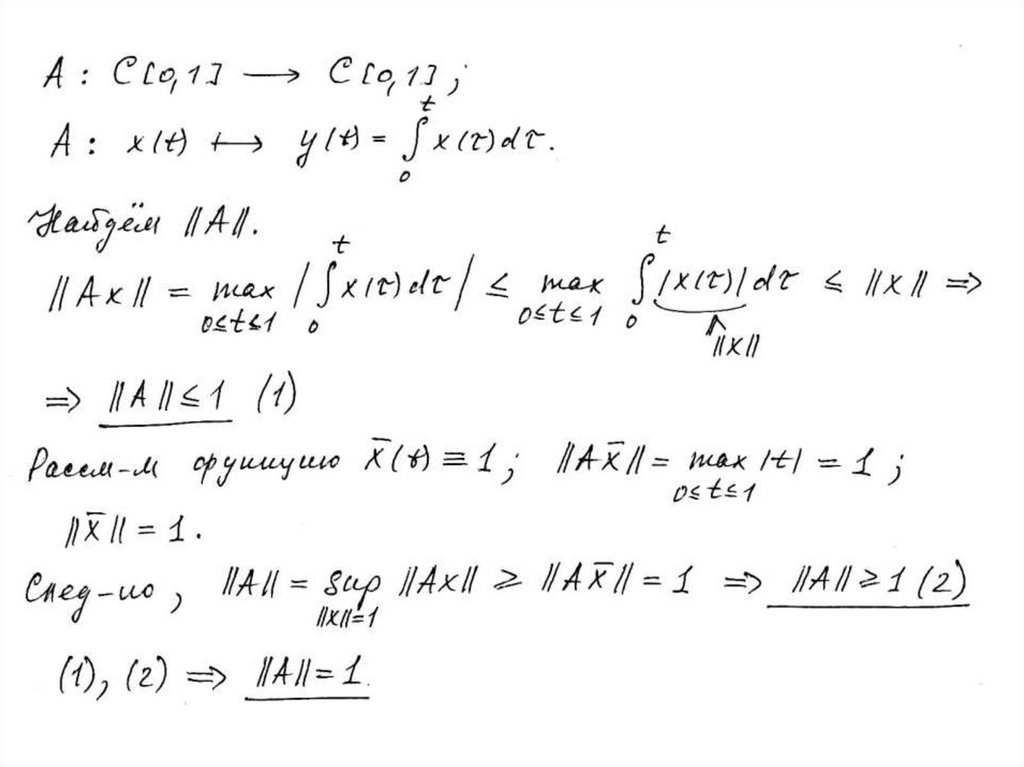 A : C[0,1] → C[0,1];
A : x(t) ↦ y(t) = ∫₀ᵗ x(τ)dτ.
Найдём ‖A‖.
‖Ax‖ = max_{0≤t≤1} |∫₀ᵗ x(τ)dτ| ≤ max_{0≤t≤1} ∫₀ᵗ |x(τ)|dτ ≤ ‖x‖ ⇒
∧ ‖x‖
⇒ ‖A‖ ≤ 1 (1)
Рассм-м функцию x̄(t) ≡ 1; ‖Ax̄‖ = max_{0≤t≤1} |t| = 1;
‖x̄‖ = 1.
След-но, ‖A‖ = sup_{‖x‖=1} ‖Ax‖ ≥ ‖Ax̄‖ = 1 ⇒ ‖A‖ ≥ 1 (2)
(1), (2) ⇒ ‖A‖ = 1.